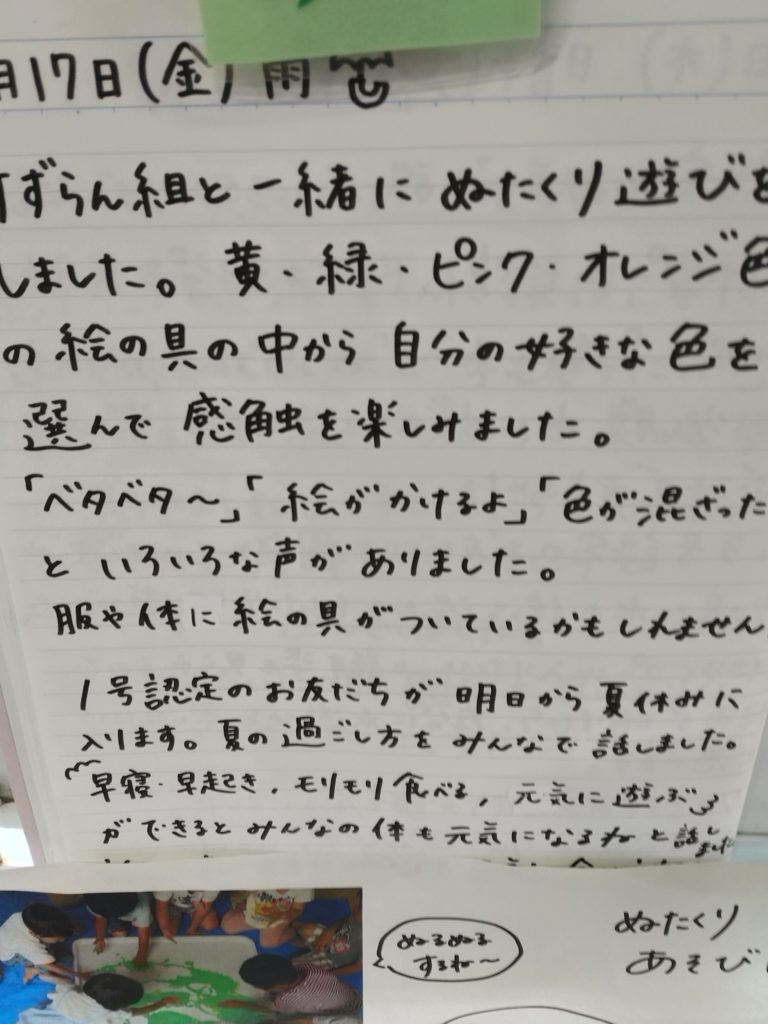 月17日(金) 雨
すずらん組と一緒に ぬたくり遊びを
しました。黄・緑・ピンク・オレンジ色
の絵の具の中から 自分の好きな色を
選んで 感触を楽しみました。
「ベタベタ〜」「絵がかけるよ」「色が混ざった
と いろいろな声がありました。
服や体に絵の具がついているかもしれません
1号認定のお友だちが明日から夏休みに
入ります。夏の過ごし方をみんなで話しました。
早寝・早起き、モリモリ食べる、元気に遊ぶ
ができるとみんなの体も元気になるね と話しました
ぬるぬる
するね〜
ぬたくり
あそび